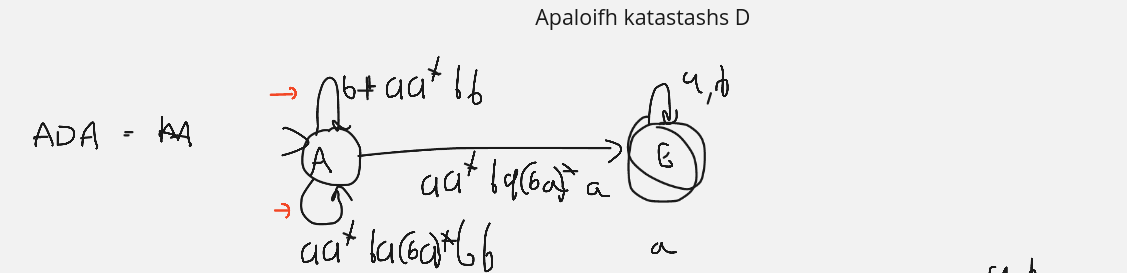 Apaloifh katastashs D
b+ aa* bb
a,b
ADA =
A
E
aa* ba(ba)* a
aa* ba(ba)* bb
a